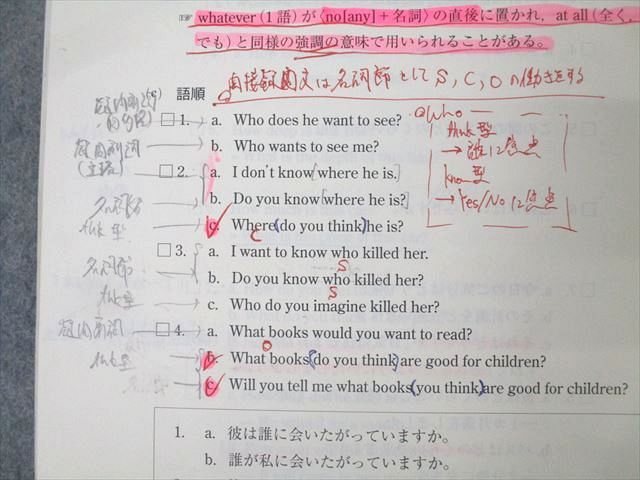 whatever (1語) が〈no[any]+名詞〉の直後に置かれ, at all (全く,
でも) と同様の強調の意味で用いられることがある。
間接疑問文は名詞節としてS, C, Oの働きをする
語順
1. a. Who does he want to see?
b. Who wants to see me?
2. a. I don't know [where he is.]
b. Do you know [where he is?]
c. Where (do you think) he is?
C
3. a. I want to know who killed her.
S
b. Do you know who killed her?
S
c. Who do you imagine killed her?
4. a. What books would you want to read?
O
b. What books (do you think) are good for children?
c. Will you tell me what books (you think) are good for children?
Who
think型
→誰に焦点
know型
→Yes/Noに焦点
疑問副詞
名詞節
think型
名詞節
think型
think型
1. a. 彼は誰に会いたがっていますか。
b. 誰が私に会いたがっていますか。